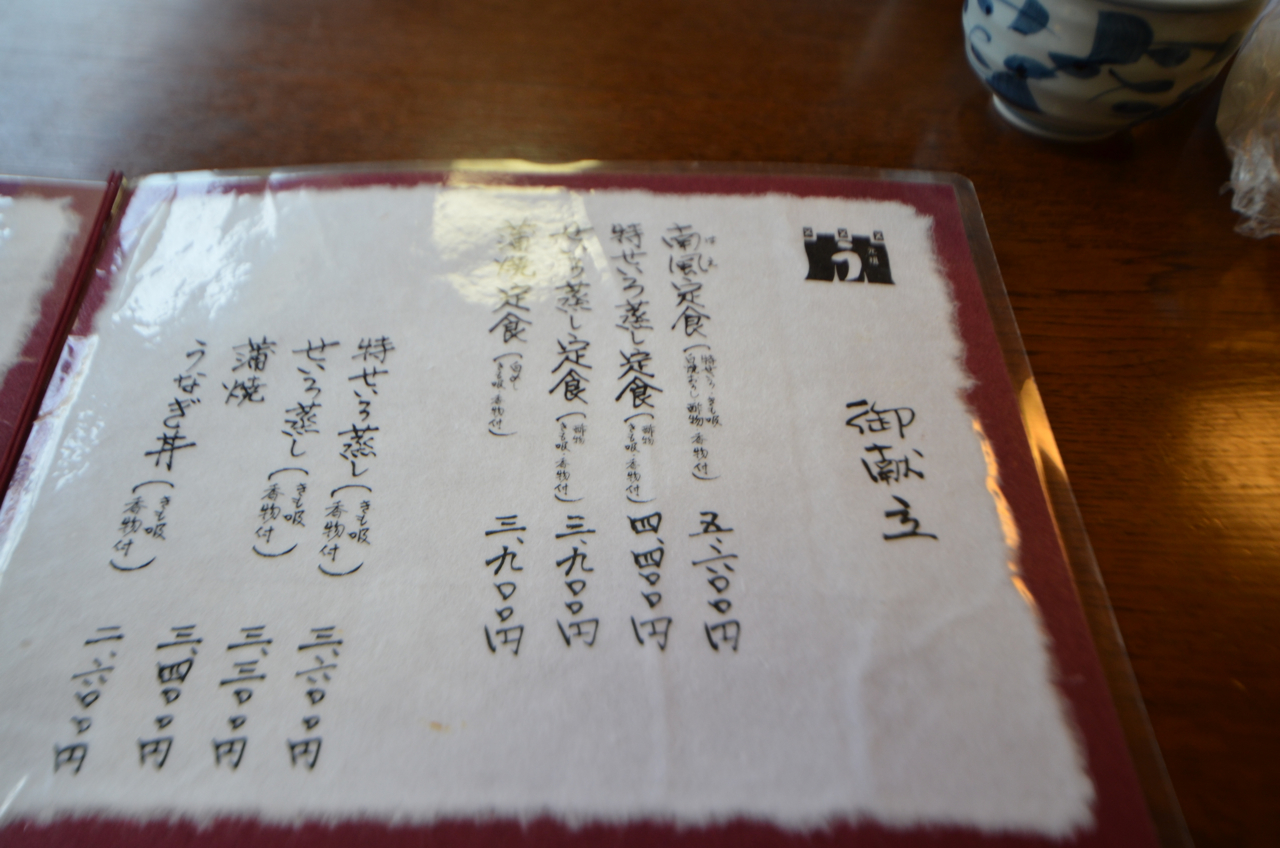 う
御献立
南風定食(特せいろ きも吸
白焼おろし 酢物 香物付)五、六〇〇円
特せいろ蒸し定食(酢物
きも吸 香物付)四、四〇〇円
せいろ蒸し定食(酢物
きも吸 香物付)三、九〇〇円
蒲焼定食(きも吸 香物付)三、九〇〇円
特せいろ蒸し(きも吸
香物付)三、六〇〇円
せいろ蒸し(きも吸
香物付)三、三〇〇円
蒲焼 三、四〇〇円
うなぎ丼(きも吸
香物付)二、六〇〇円